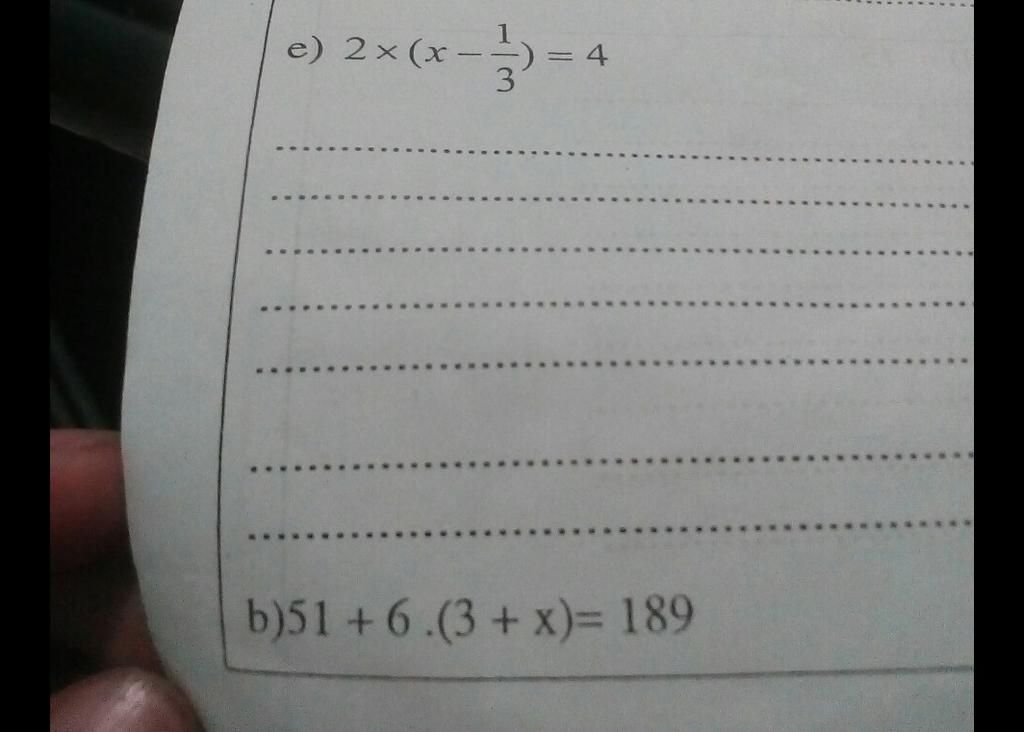 e) 2 × (x − 1/3) = 4
b)51 + 6 .(3 + x)= 189